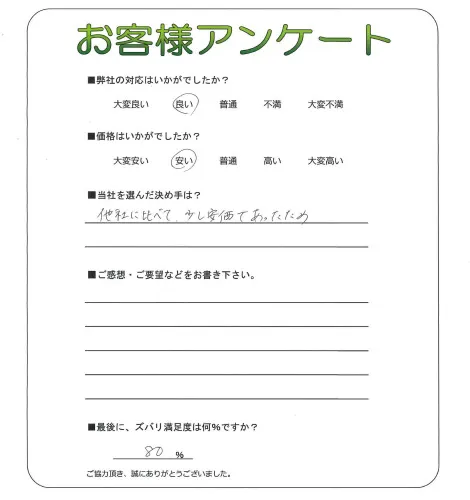 お客様アンケート
■弊社の対応はいかがでしたか？
大変良い 良い 普通 不満 大変不満
■価格はいかがでしたか？
大変安い 安い 普通 高い 大変高い
■当社を選んだ決め手は？
他社に比べて、少し安価であったため
■ご感想・ご要望などをお書き下さい。
■最後に、ズバリ満足度は何％ですか？
80 ％
ご協力頂き、誠にありがとうございました。